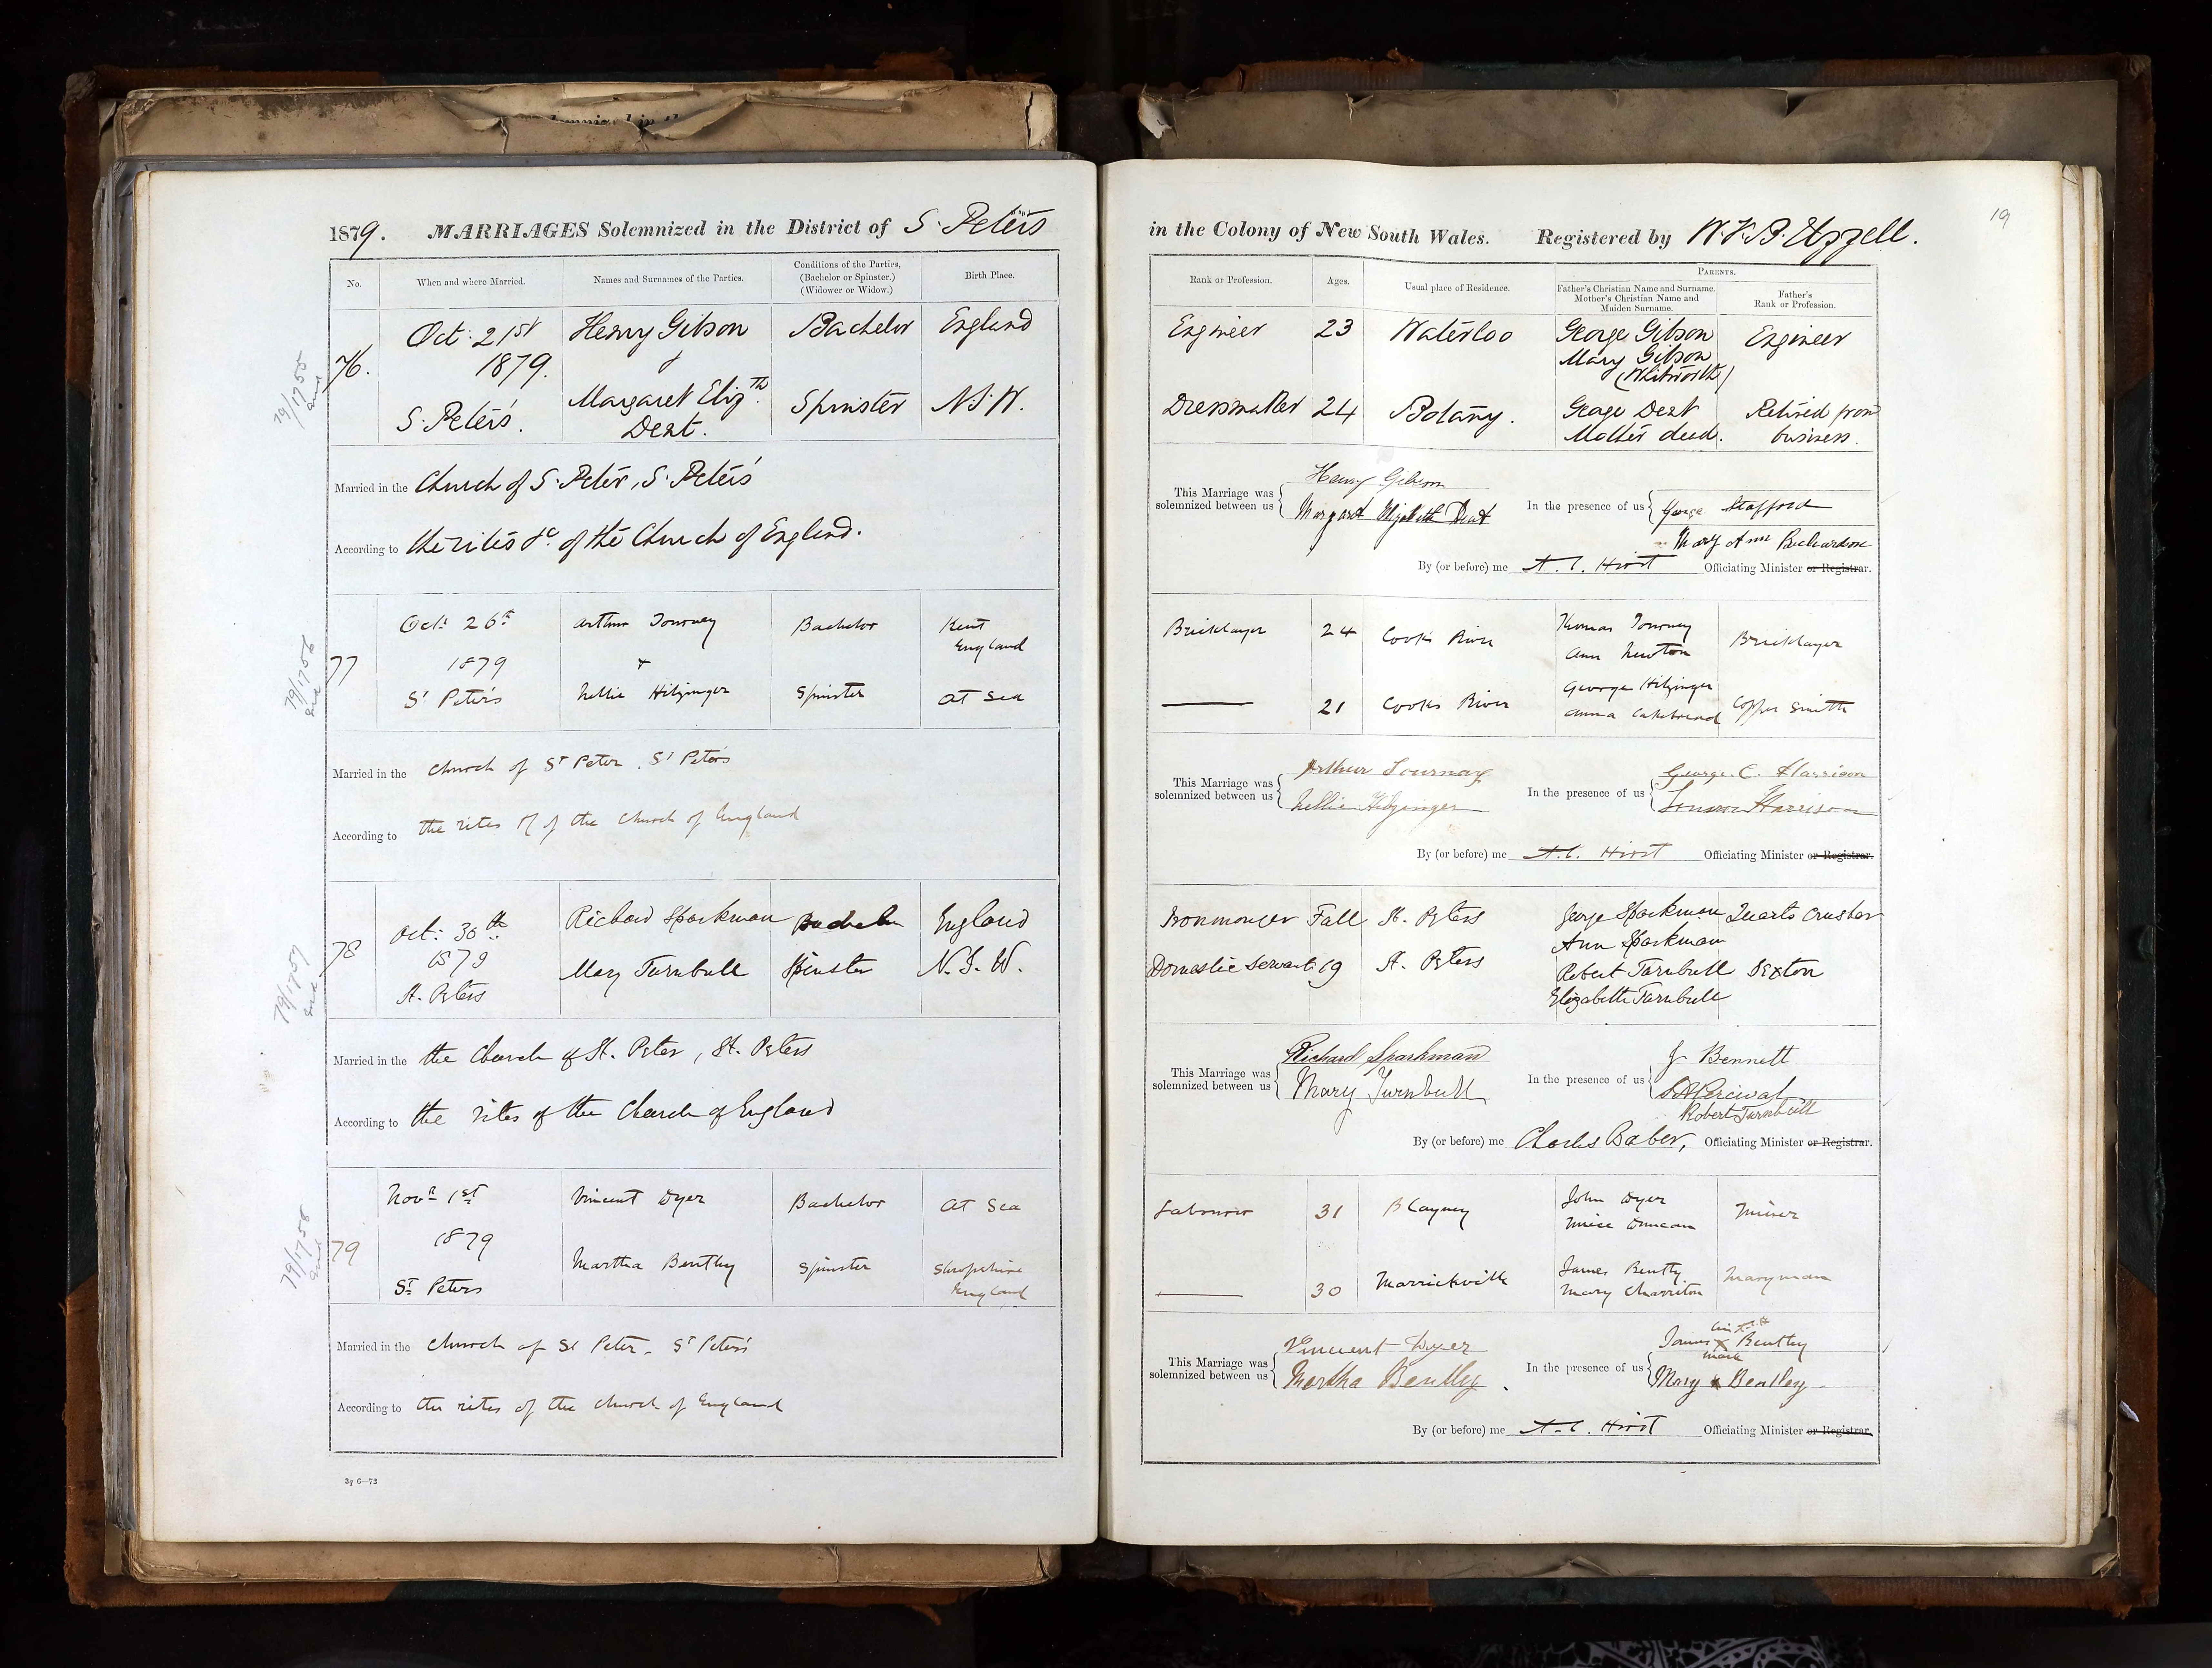 1879. MARRIAGES Solemnized in the District of S. Peters
No.
When and where Married.
Names and Surnames of the Parties.
Conditions of the Parties,
(Bachelor or Spinster.)
(Widower or Widow.)
Birth Place.
76.
Oct: 21st
1879.
S. Peter's.
Henry Gibson
&
Margaret Eliz.th
Dent.
Bachelor
Spinster
England
N.S.W.
79/1755
Married in the Church of S. Peter, S. Peter's
According to the rites &c. of the Church of England.
77
Oct: 26th
1879
St Peter's
Arthur Tournay
+
Nellie Hilzinger
Bachelor
Spinster
Kent
England
At Sea
79/1756
Married in the Church of St Peter, St Peter's
According to the rites of the Church of England
78
Oct: 30th
1879
St. Peters
Richard Sparkman
Mary Turnbull
Bachelor
Spinster
England
N.S.W.
79/1757
Married in the the Church of St. Peter, St. Peters
According to the rites of the Church of England
79
Novr 1st
1879
St Peters
Vincent Dyer
Martha Bentley
Bachelor
Spinster
At Sea
Shropshire
England
79/1758
Married in the Church of St Peter, St Peter's
According to the rites of the Church of England
19
in the Colony of New South Wales. Registered by W.F.B. Uzzell.
Rank or Profession.
Ages.
Usual place of Residence.
PARENTS.
Father's Christian Name and Surname.
Mother's Christian Name and
Maiden Surname.
Father's
Rank or Profession.
Engineer
23
Waterloo
George Gibson
Mary Gibson
(Whitworth)
Engineer
Dressmaker
24
Botany.
George Dent
Mother dead.
Retired from
business.
This Marriage was
solemnized between us
Henry Gibson
Margaret Elizabeth Dent
In the presence of us
George Stafford
Mary Ann Richardson
By (or before) me A. C. Hirst Officiating Minister or Registrar.
Bricklayer
24
Cooks River
Thomas Tournay
Ann Newton
Bricklayer
21
Cooks River
George Hilzinger
Anna
Copper Smith
This Marriage was
solemnized between us
Arthur Tournay
Nellie Hilzinger
In the presence of us
George C. Harrison
Harrison
By (or before) me A. C. Hirst Officiating Minister or Registrar.
Ironmonger
Fall
St. Peters
George Sparkman
Ann Sparkman
Quartz Crusher
Domestic Servant
19
St. Peters
Robert Turnbull
Elizabeth Turnbull
Sexton
This Marriage was
solemnized between us
Richard Sparkman
Mary Turnbull
In the presence of us
J Bennett
Percival
Robert Turnbull
By (or before) me Charles Baber, Officiating Minister or Registrar.
Labourer
31
Blayney
John Dyer
Duncan
Miner
30
Marrickville
James Bently
Mary Charriton
This Marriage was
solemnized between us
Vincent Dyer
Martha Bentley
In the presence of us
James X Bentley
mark
Mary x Bentley
By (or before) me A. C. Hirst Officiating Minister or Registrar.